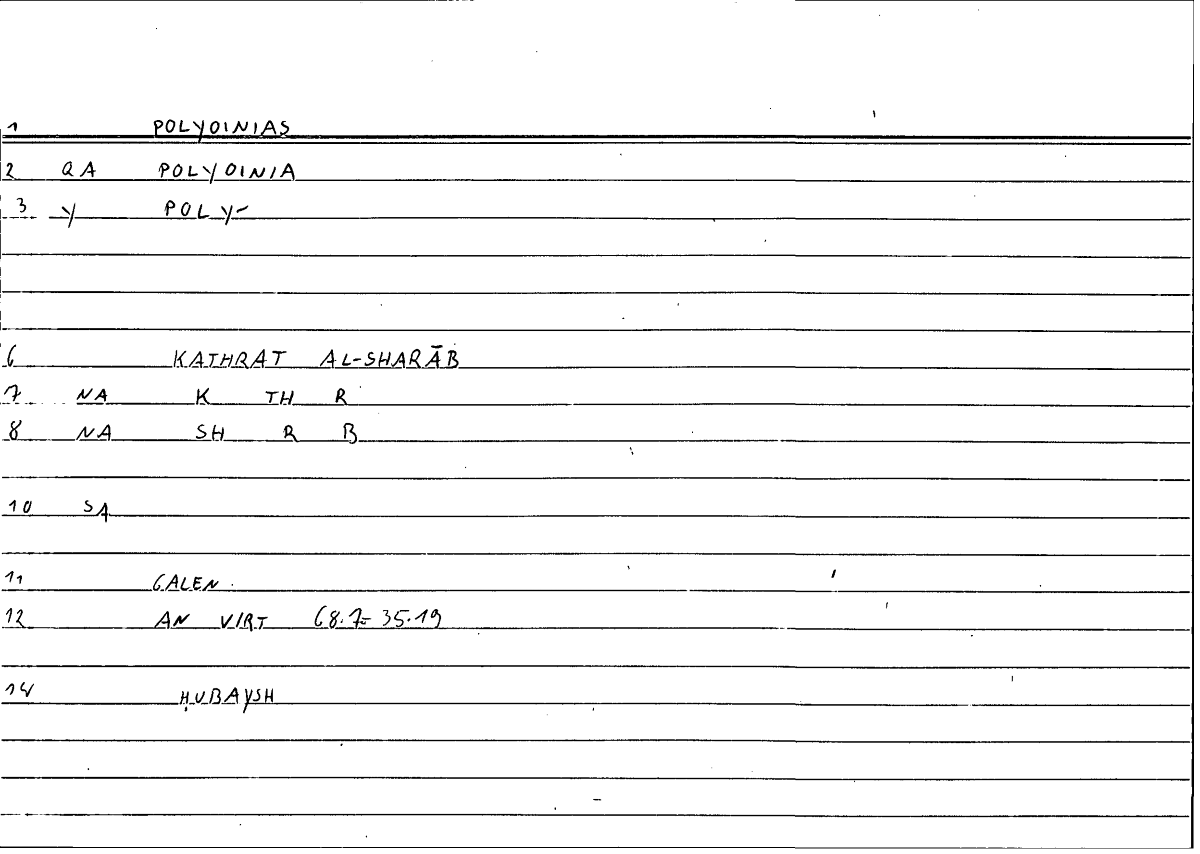 1 POLYOINIAS
2 QA POLYOINIA
3 Y POLY-
6 KATHRAT AL-SHARĀB
7 NA K TH R
8 NA SH R B
10 SA
11 GALEN
12 AN VIRT 68.7=35.19
14 ḤUBAYSH